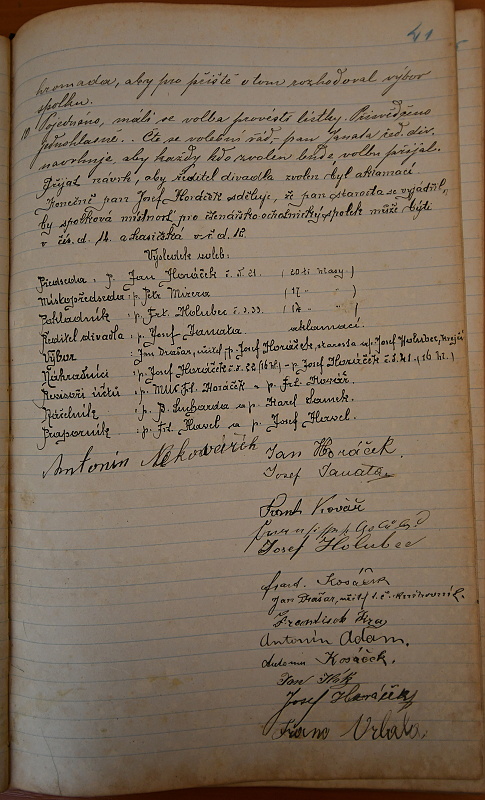 41
hromada, aby pro příště o tom rozhodoval výbor
spolku.
10 Pojednáno, máli se volba provésti lístky. Přisvědčeno
jednohlasně. Čte se volební řád, pan Janata řed. div.
navrhuje, aby každý kdo zvolen bude, volbu přijal.
Přijat návrh, aby ředitel divadla zvolen byl aklamací.
Konečně pan Josef Horáček sděluje, že pan starosta se vyjádřil,
by spolková místnost pro čtenářsko-ochotnický spolek může býti
v čís. d. 14. a hasičská v č. d. 12.
Výsledek voleb:
Předseda: p. Jan Horáček č. d. 21. (20ti hlasy)
Místopředseda: p. Petr Mizera (17 " " )
Pokladník: p. Frt. Holubec č. d. 33. (17 " " )
Ředitel divadla: p. Josef Janata. aklamací.
Výbor: Jan Drašar, učitel p. Josef Horáček, starosta a p. Josef Holubec, krejčí
Náhradníci: p. Josef Horáček č. d. 22 (16 hl) – p. Josef Horáček č. d. 41 (16 hl.)
Revisoři účtů: p. MUC. Frt. Horáček a p. Frt. Kovář.
Náčelník: p. P. Sucharda a p. Karel Samek.
Praporník: p. Frt. Havel a p. Josef Havel.
Antonín Jan Horáček.
Josef Janata
Frant. Kovář
Josef Holubec
Ferd. Kosáček
Jan Drašar, učitel t. č. knihovník.
František
Antonín Adam.
Antonín Kosáček.
Jan
Josef Horáček
Vrbata.